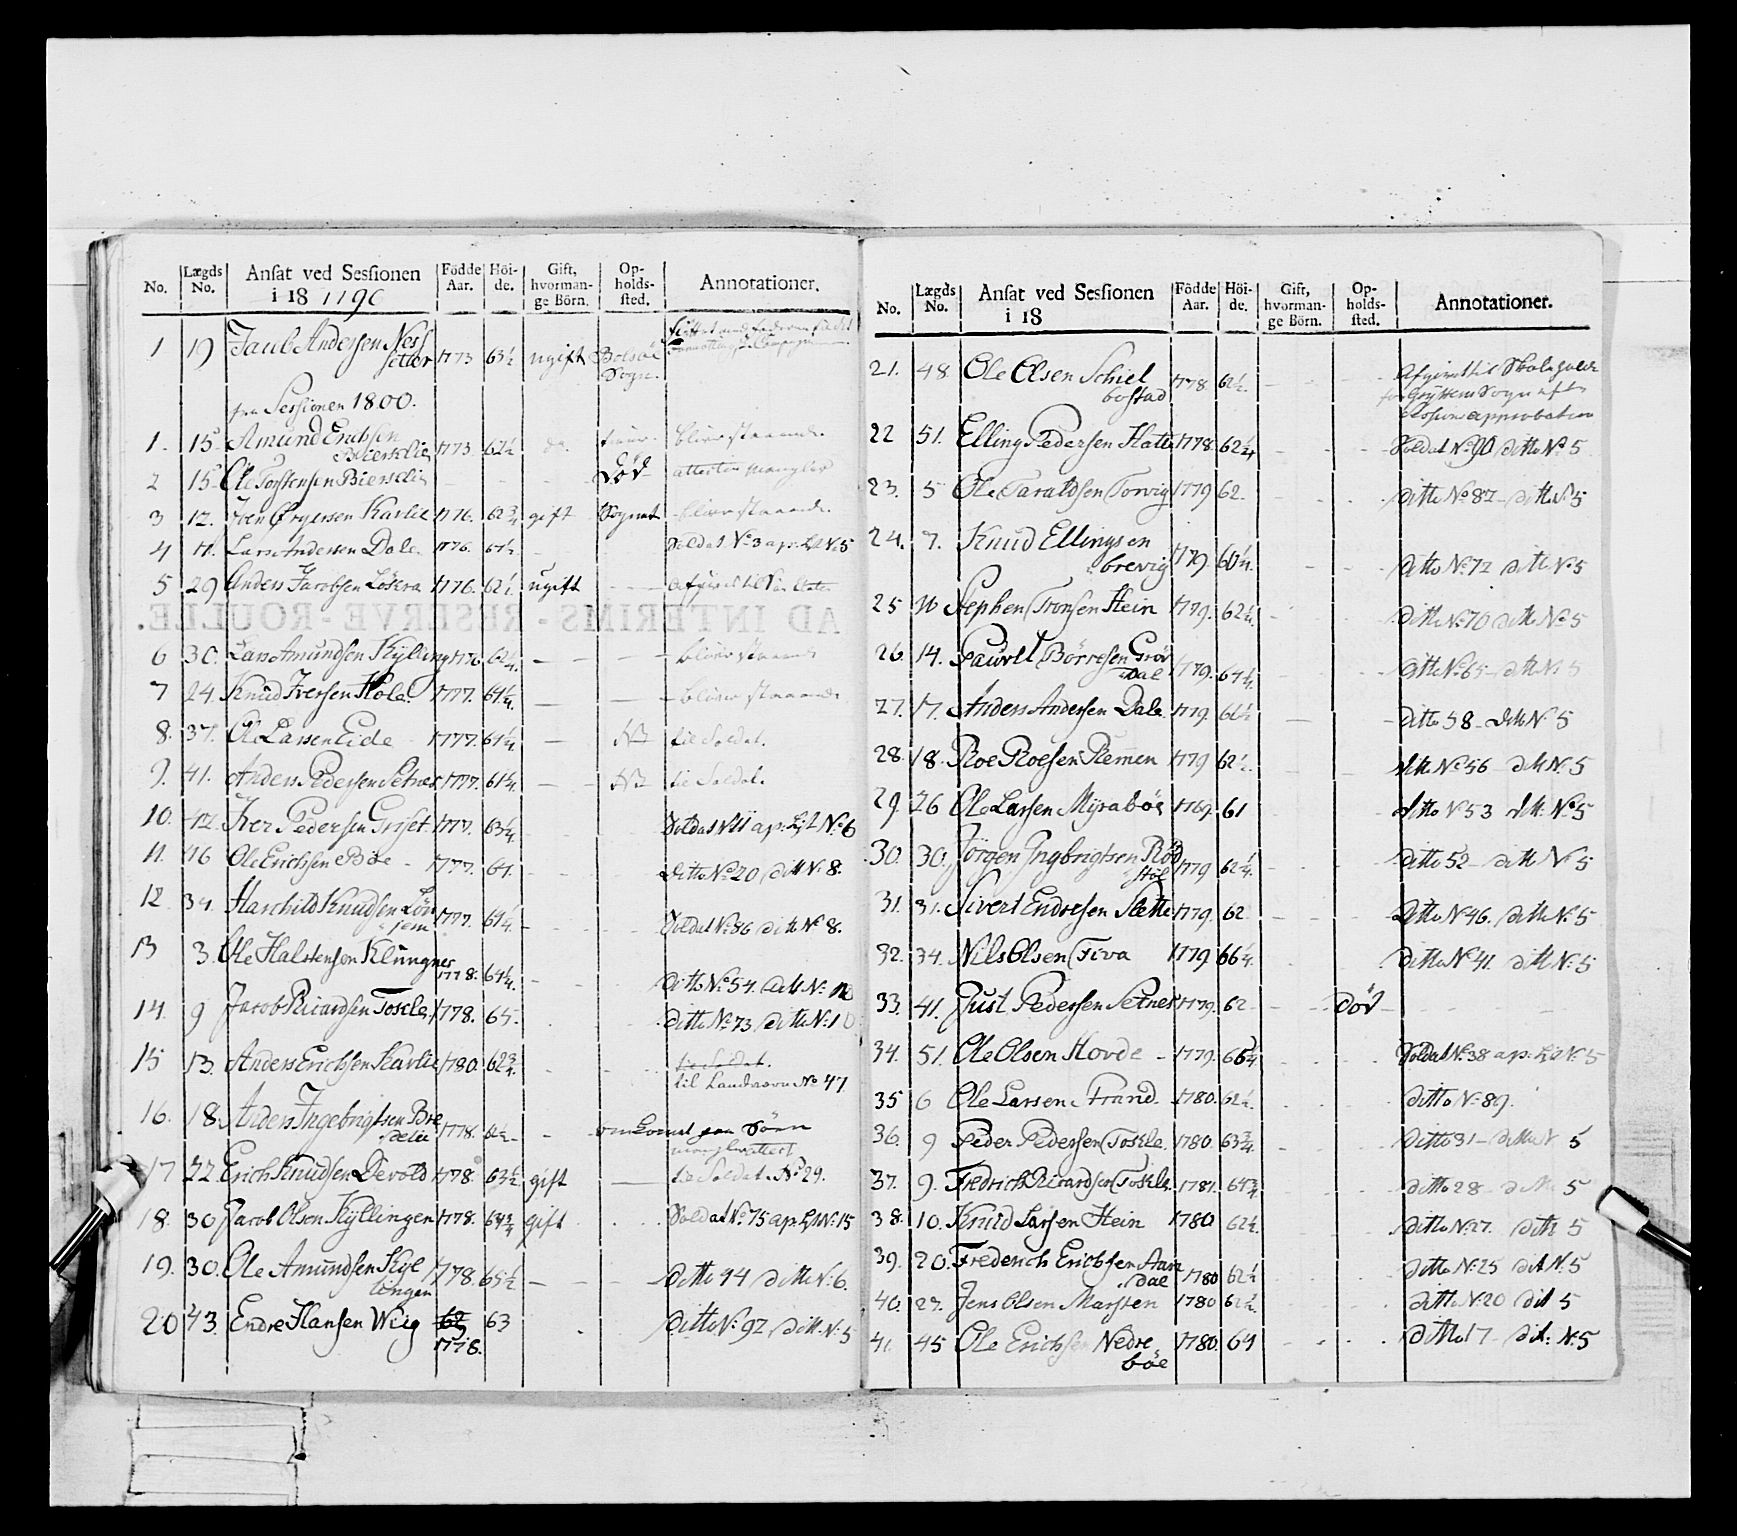 No. Lægds No. Ansat ved Sessionen i 18 1796 Födde Aar. Höi-de. Gift, hvorman-ge Börn. Op-holds-sted. Annotationer.
1 19 Andersen Ness
setter 1773 63½ ugift Bolsöe
Sogn.
fra Sessionen 1800.
1. 15 Amund Erichsen
Bierselie 1773 62½ bliver staaende
2 15 Ole Torstensen Bierselie Död attesten mangler
3 12. Iven Karlie 1776. 62¾ gift Sognet bliver staaende
4 11. Lars Andersen Dale 1776. Soldat No 3 No 5
5 29 Anders Jacobsen 1776. ugift
AD INTERIMS - RESERVE - ROULLE.
6 30. Lars Amundsen Kylling 1776 bliver staaende
7 24. Knud Iversen Hole 1777. 61¼ bliver staaende
8. 37. Ole Larsen Eide 1777. 61¼ til Soldat.
9. 41. Anders Pedersen Setnes 1777. 61¼ til Soldat.
10. 12. Iver Pedersen Griset 1777. 63¼ Soldat No 11 No 6
11. 16 Ole Erichsen Böe 1777. 61. Ditto No 20 ditt No 8.
12 34. Harchild Knudsen Lön
sem 1777. 61¼ Soldat No 86 ditt No 8.
13 3. Ole Halstensen Klungnes
1778. 64¼ ditto No 54. ditt No 10
14. 9 Jacob Ricardsen Toskle 1778. 65. ditto No 73 ditto No 10
15 13. Anders Erichsen Karlie 1780. 62¾ til Soldat.
til Landværn No 47
16. 18. Anders Ingebrigtsen Bre
delie 1778. omkommet paa Söen
17 22. Erich Knudsen Devold 1778. 63½ gift til Soldat No 29.
18. 30 Jacob Olsen Kyllingen 1778. 64¾ gift Soldat No 75 No 15
19. 30. Ole Amundsen Kyl
lingen 1778. 65½ ditto 94 ditto No 6.
20 43. Endre Hansen Wiig 63
1778. ditto No 92 ditt No 5
No. Lægds No. Ansat ved Sessionen i 18 Födde Aar. Höi-de. Gift, hvorman-ge Börn. Op-holds-sted. Annotationer.
21. 48 Ole Olsen Schiel
bostad 1778 62½ Afgivet til Skoleholder
for Gryttens Sogn
approbation
22 51. Elling Pedersen Hatle 1778. 62¼ Soldat No 90 ditto No 5
23. 5 Ole Taraldsen Torvig 1779 62. ditto No 87 ditto No 5
24. 7. Knud Ellingsen
brevig 1779 60½ ditto No 72 ditt No 5
25 Stephen Tronsen Hein 1779. 62¼ ditto No 70 ditto No 5
26. 14. Paurel Börresen Gröv
dal 1779. 64¼ ditto No 65 ditt No 5
27. 17. Anders Andersen Dale 1779. ditto 58 ditt No 5
28. 18. Roe Roesen Remmen 1779 62½ ditto No 56 ditt No 5
29. 26 Ole Larsen Myraböe 1769. 61 ditto No 53 ditt No 5
30. 30. Jörgen Ingbrigtsen Röd
stöl 1779 62¼ ditto 52 ditt No 5
31. 31. Sivert Endresen Slette 1779. 62 ditto No 46. ditto No 5
32. 34. Nils Olsen Tiva 1779 66¼ ditto No 41. ditt No 5
33. 41. Just Pedersen Setnes 1779. 62 Död
34. 51. Ole Olsen Hovde 1779. Soldat No 38 No 5
35 6 Ole Larsen Strand 1780. 62½ ditto No 89.
36. 9 Peder Pedersen Toskle 1780. 63¾ ditto 31 ditto No 5
37. 9. Fredrich Ricardsen Toskle 1781. 64¾ ditto 28 5
38. 10. Knud Larsen Hein 1780 62½ ditto No 27. ditto 5
39. 20. Frederich Erichsen Aan
dal 1780 62½ ditto No 25 dit No 5
40. 27. Jens Olsen Marsten 1780 62½ ditto No 20 dit 5
41. 45 Ole Erichsen Nedre
böe 1780. 64 ditto 17 dit: No 5